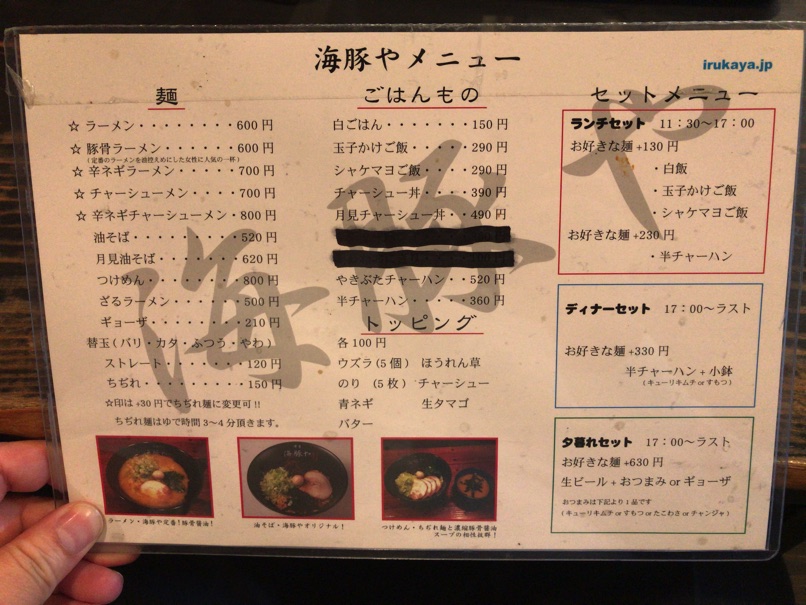 海豚やメニュー
irukaya.jp
麺
☆ ラーメン・・・・・・・・・600 円
☆ 豚骨ラーメン・・・・・・・600 円
(定番のラーメンを油控えめにした女性に人気の一杯)
☆ 辛ネギラーメン・・・・・・700 円
☆ チャーシューメン・・・・・700 円
☆ 辛ネギチャーシューメン・800 円
油そば・・・・・・・・・520 円
月見油そば・・・・・・・620 円
つけめん・・・・・・・・800 円
ざるラーメン・・・・・・500 円
ギョーザ・・・・・・・・210 円
替玉(バリ・カタ・ふつう・やわ)
ストレート・・・・・・・120 円
ちぢれ・・・・・・・・・150 円
☆印は +30 円でちぢれ麺に変更可!!
ちぢれ麺はゆで時間 3〜4 分頂きます。
ごはんもの
白ごはん・・・・・・・150 円
玉子かけご飯・・・・・290 円
シャケマヨご飯・・・・290 円
チャーシュー丼・・・・390 円
月見チャーシュー丼・・490 円
やきぶたチャーハン・・520 円
半チャーハン・・・・・360 円
トッピング
各 100 円
ウズラ(5 個) ほうれん草
のり (5 枚) チャーシュー
青ネギ 生タマゴ
バター
セットメニュー
ランチセット 11:30〜17:00
お好きな麺 +130 円
・白飯
・玉子かけご飯
・シャケマヨご飯
お好きな麺 +230 円
・半チャーハン
ディナーセット 17:00〜ラスト
お好きな麺 +330 円
半チャーハン + 小鉢
(キューリキムチ or すもつ)
夕暮れセット 17:00〜ラスト
お好きな麺 +630 円
生ビール + おつまみ or ギョーザ
おつまみは下記より 1 品です
(キューリキムチ or すもつ or たこわさ or チャンジャ)
海豚や
ラーメン・海豚や定番!豚骨醤油!
油そば・海豚やオリジナル!
つけめん・ちぢれ麺と濃縮豚骨醤油
スープの相性抜群!